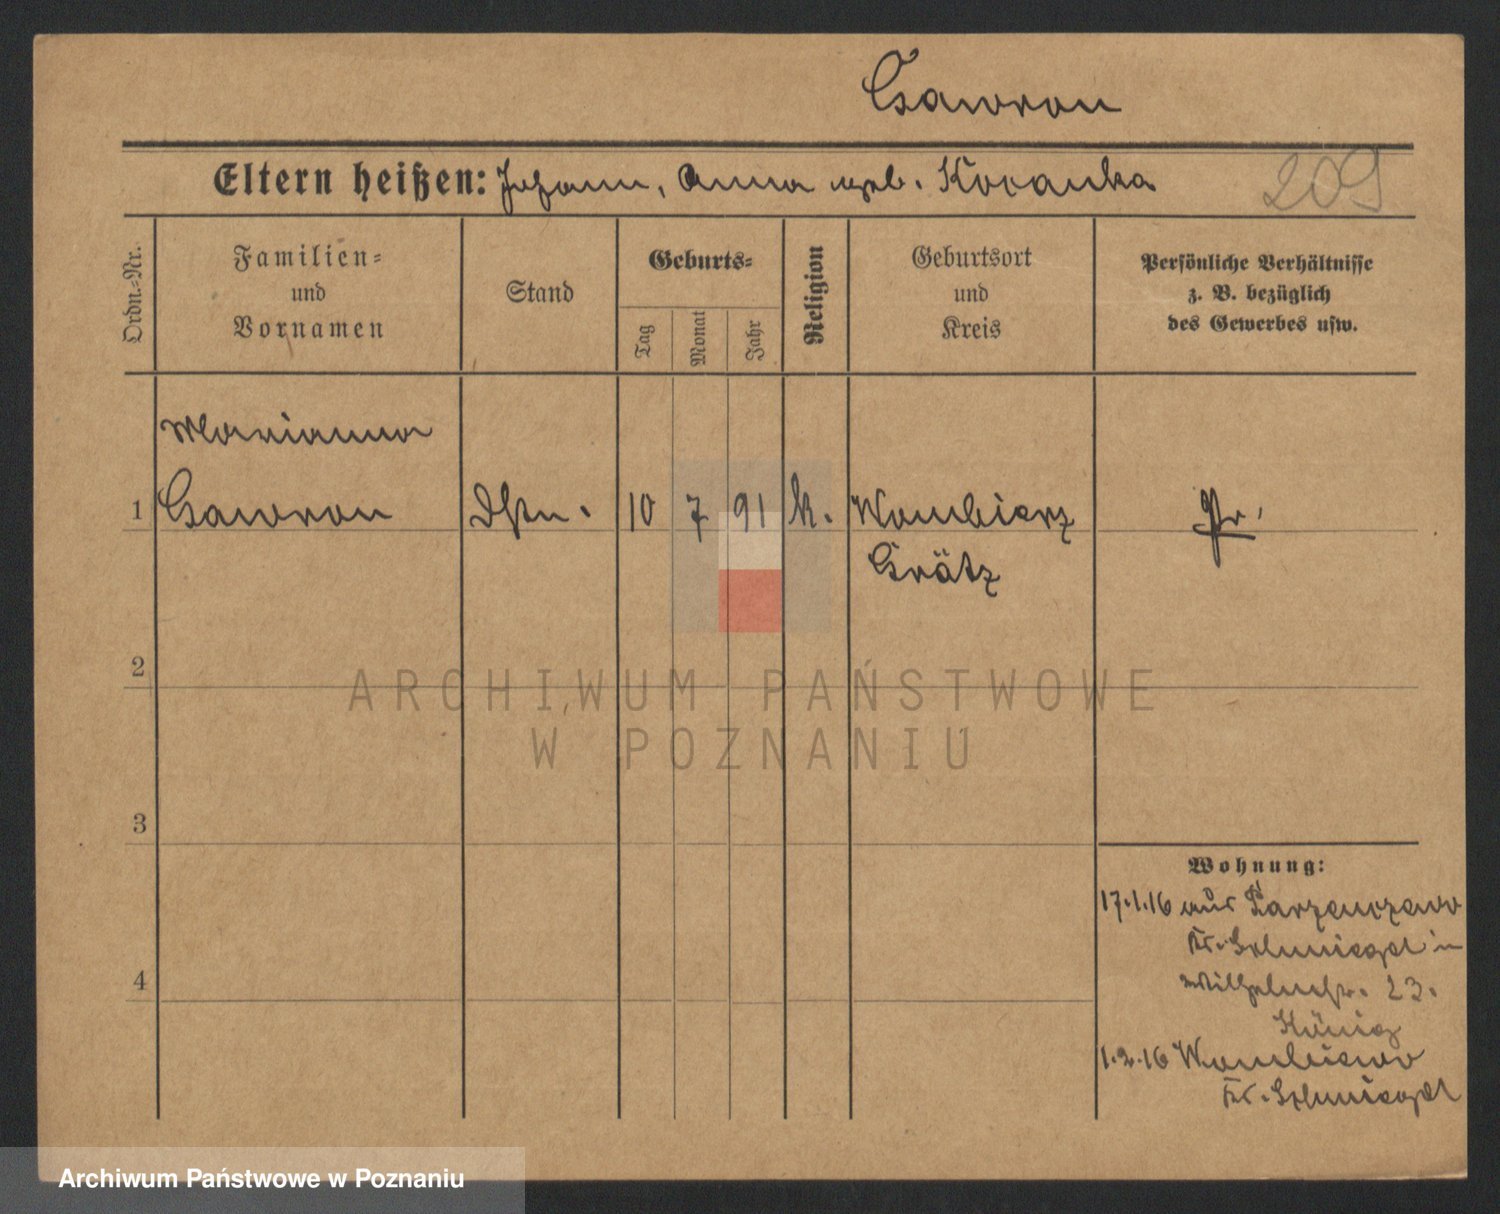 Gawron
Eltern heißen: Johann, Anna geb. Kocanka
209
Ordn.-Nr.
Familien-
und
Vornamen
Stand
Geburts-
Tag
Monat
Jahr
Religion
Geburtsort
und
Kreis
Persönliche Verhältnisse
z. B. bezüglich
des Gewerbes usw.
Marianna
1 Gawron Dstm. 10 7 91 k. Wombierz Pr.
Grätz
2
3
4
Wohnung:
17.1.16 aus
Kr. Schmiegel in
Wilhelmstr. 23.
König
1.2.16 Wombiewo
Kr. Schmiegel
ARCHIWUM PAŃSTWOWE
W POZNANIU
Archiwum Państwowe w Poznaniu